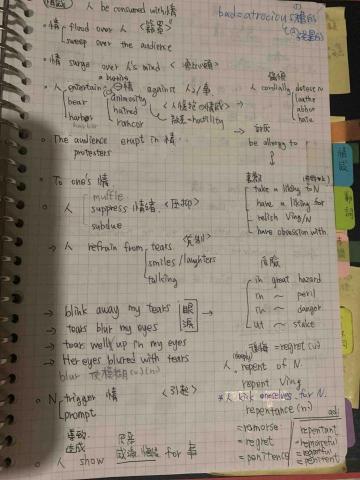 人 be consumed with 情
bad = atrocious
情 flood over 人
sweep over the audience
情 surge over 人's mind
人 entertain
bear
harbor
animosity
hatred
rancor
against 人/事
敵意 = hostility
人 cordially detest N
loathe
abhor
hate
be allergy to
The audience erupt in 情
protesters
To one's 情
人
muffle
suppress 情緒
subdue
take a liking to N
have a liking for
relish Ving/N
have obsession with
→ 人 refrain from tears
smiles/laughters
talking
危險
in great hazard
in ~ peril
in ~ danger
at ~ stake
→ blink away my tears
→ tears blur my eyes
→ tears well up in my eyes
→ Her eyes blured with tears
眼淚
blur 使模糊 (v)(n)
後悔 = regret (n)
人 (deeply) repent of N
repent Ving
人 kick oneselves for N
repentance (n)
N trigger 情 <引起>
prompt
=remorse
=regret
=penitence
adj
repentant
remorseful
regretful
penitent
造成
人 show
for 事